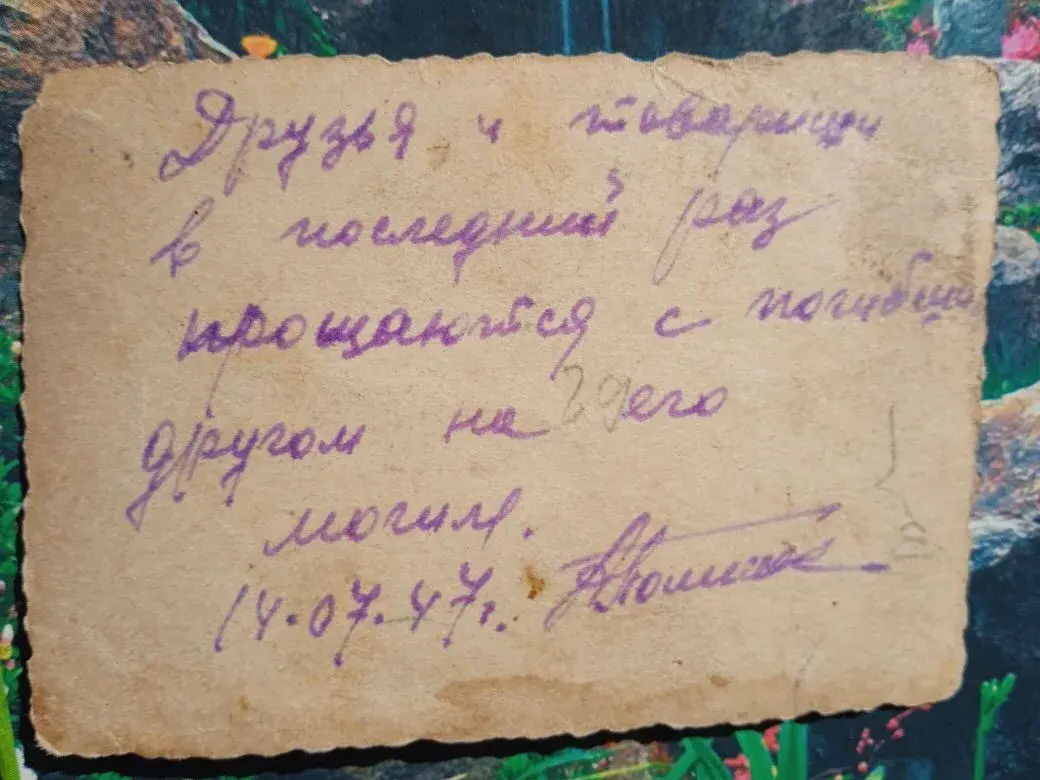 Друзья и товарищи
в последний раз
прощаются с погибшим
другом на его
могиле.
14.07.47г.